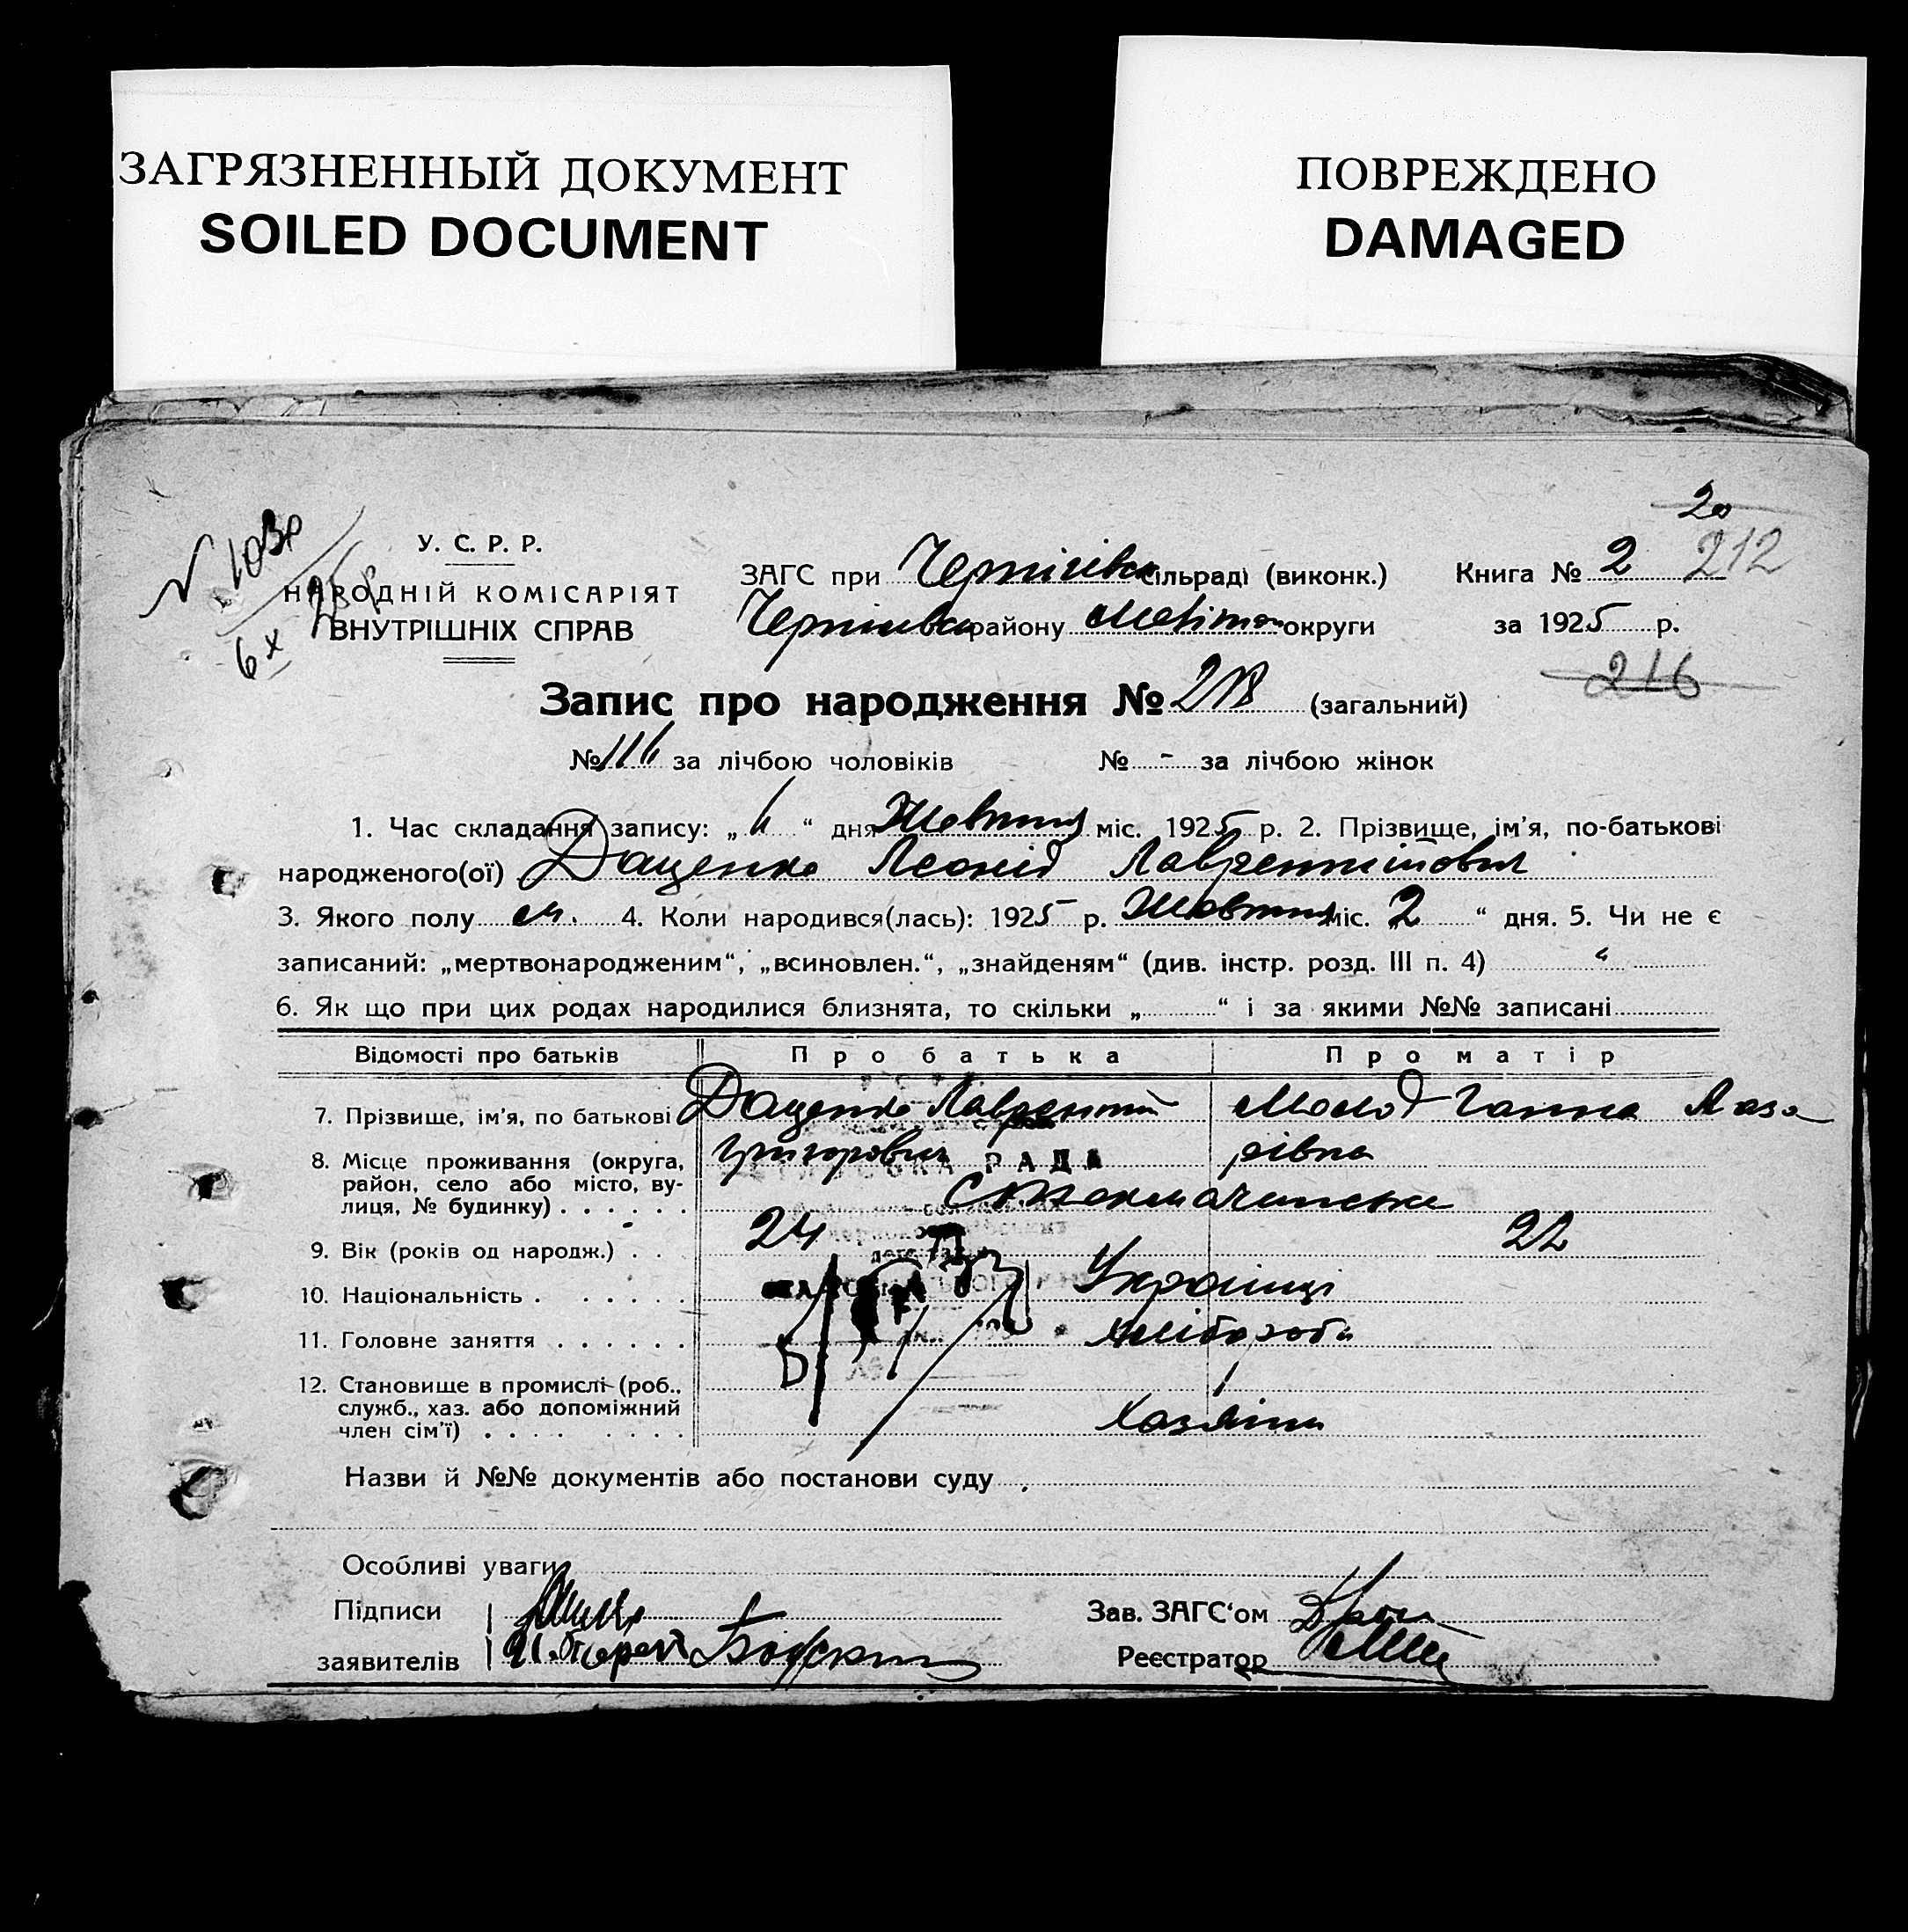 ЗАГРЯЗНЕННЫЙ ДОКУМЕНТ
SOILED DOCUMENT
ПОВРЕЖДЕНО
DAMAGED
20
212
У. С. Р. Р.
НАРОДНІЙ КОМІСАРІЯТ
ВНУТРІШНІХ СПРАВ
ЗАГС при Чернігівск сільраді (виконк.)
Книга № 2
району округи
за 1925 р.
216
Запис про народження № 218 (загальний)
№ 116 за лічбою чоловіків № - за лічбою жінок
1. Час складання запису: „ “ дня Жовтня міс. 1925 р. 2. Прізвище, ім'я, по-батькові
народженого(ої) Даценко Леонід Лаврентійович
3. Якого полу м. 4. Коли народився(лась): 1925 р. Жовтня міс. 2 “ дня. 5. Чи не є
записаний: „мертвонародженим“, „всиновлен.“, „знайденям“ (див. інстр. розд. III п. 4) "
6. Як що при цих родах народилися близнята, то скільки „ “ і за якими №№ записані
Відомості про батьків Про батька Про матір
7. Прізвище, ім'я, по батькові Даценко Лаврентій Молод Ганна Лаза
Григорович рівна
8. Місце проживання (округа,
район, село або місто, ву-
лиця, № будинку)
РАДА
9. Вік (років од народж.) 24 22
10. Національність Українці
11. Головне заняття хлібороби
12. Становище в промислі (роб.,
служб., хаз. або допоміжний
член сім'ї) хазяїни
Назви й №№ документів або постанови суду
Особливі уваги
Підписи
заявителів
Зав. ЗАГС'ом
Реєстратор